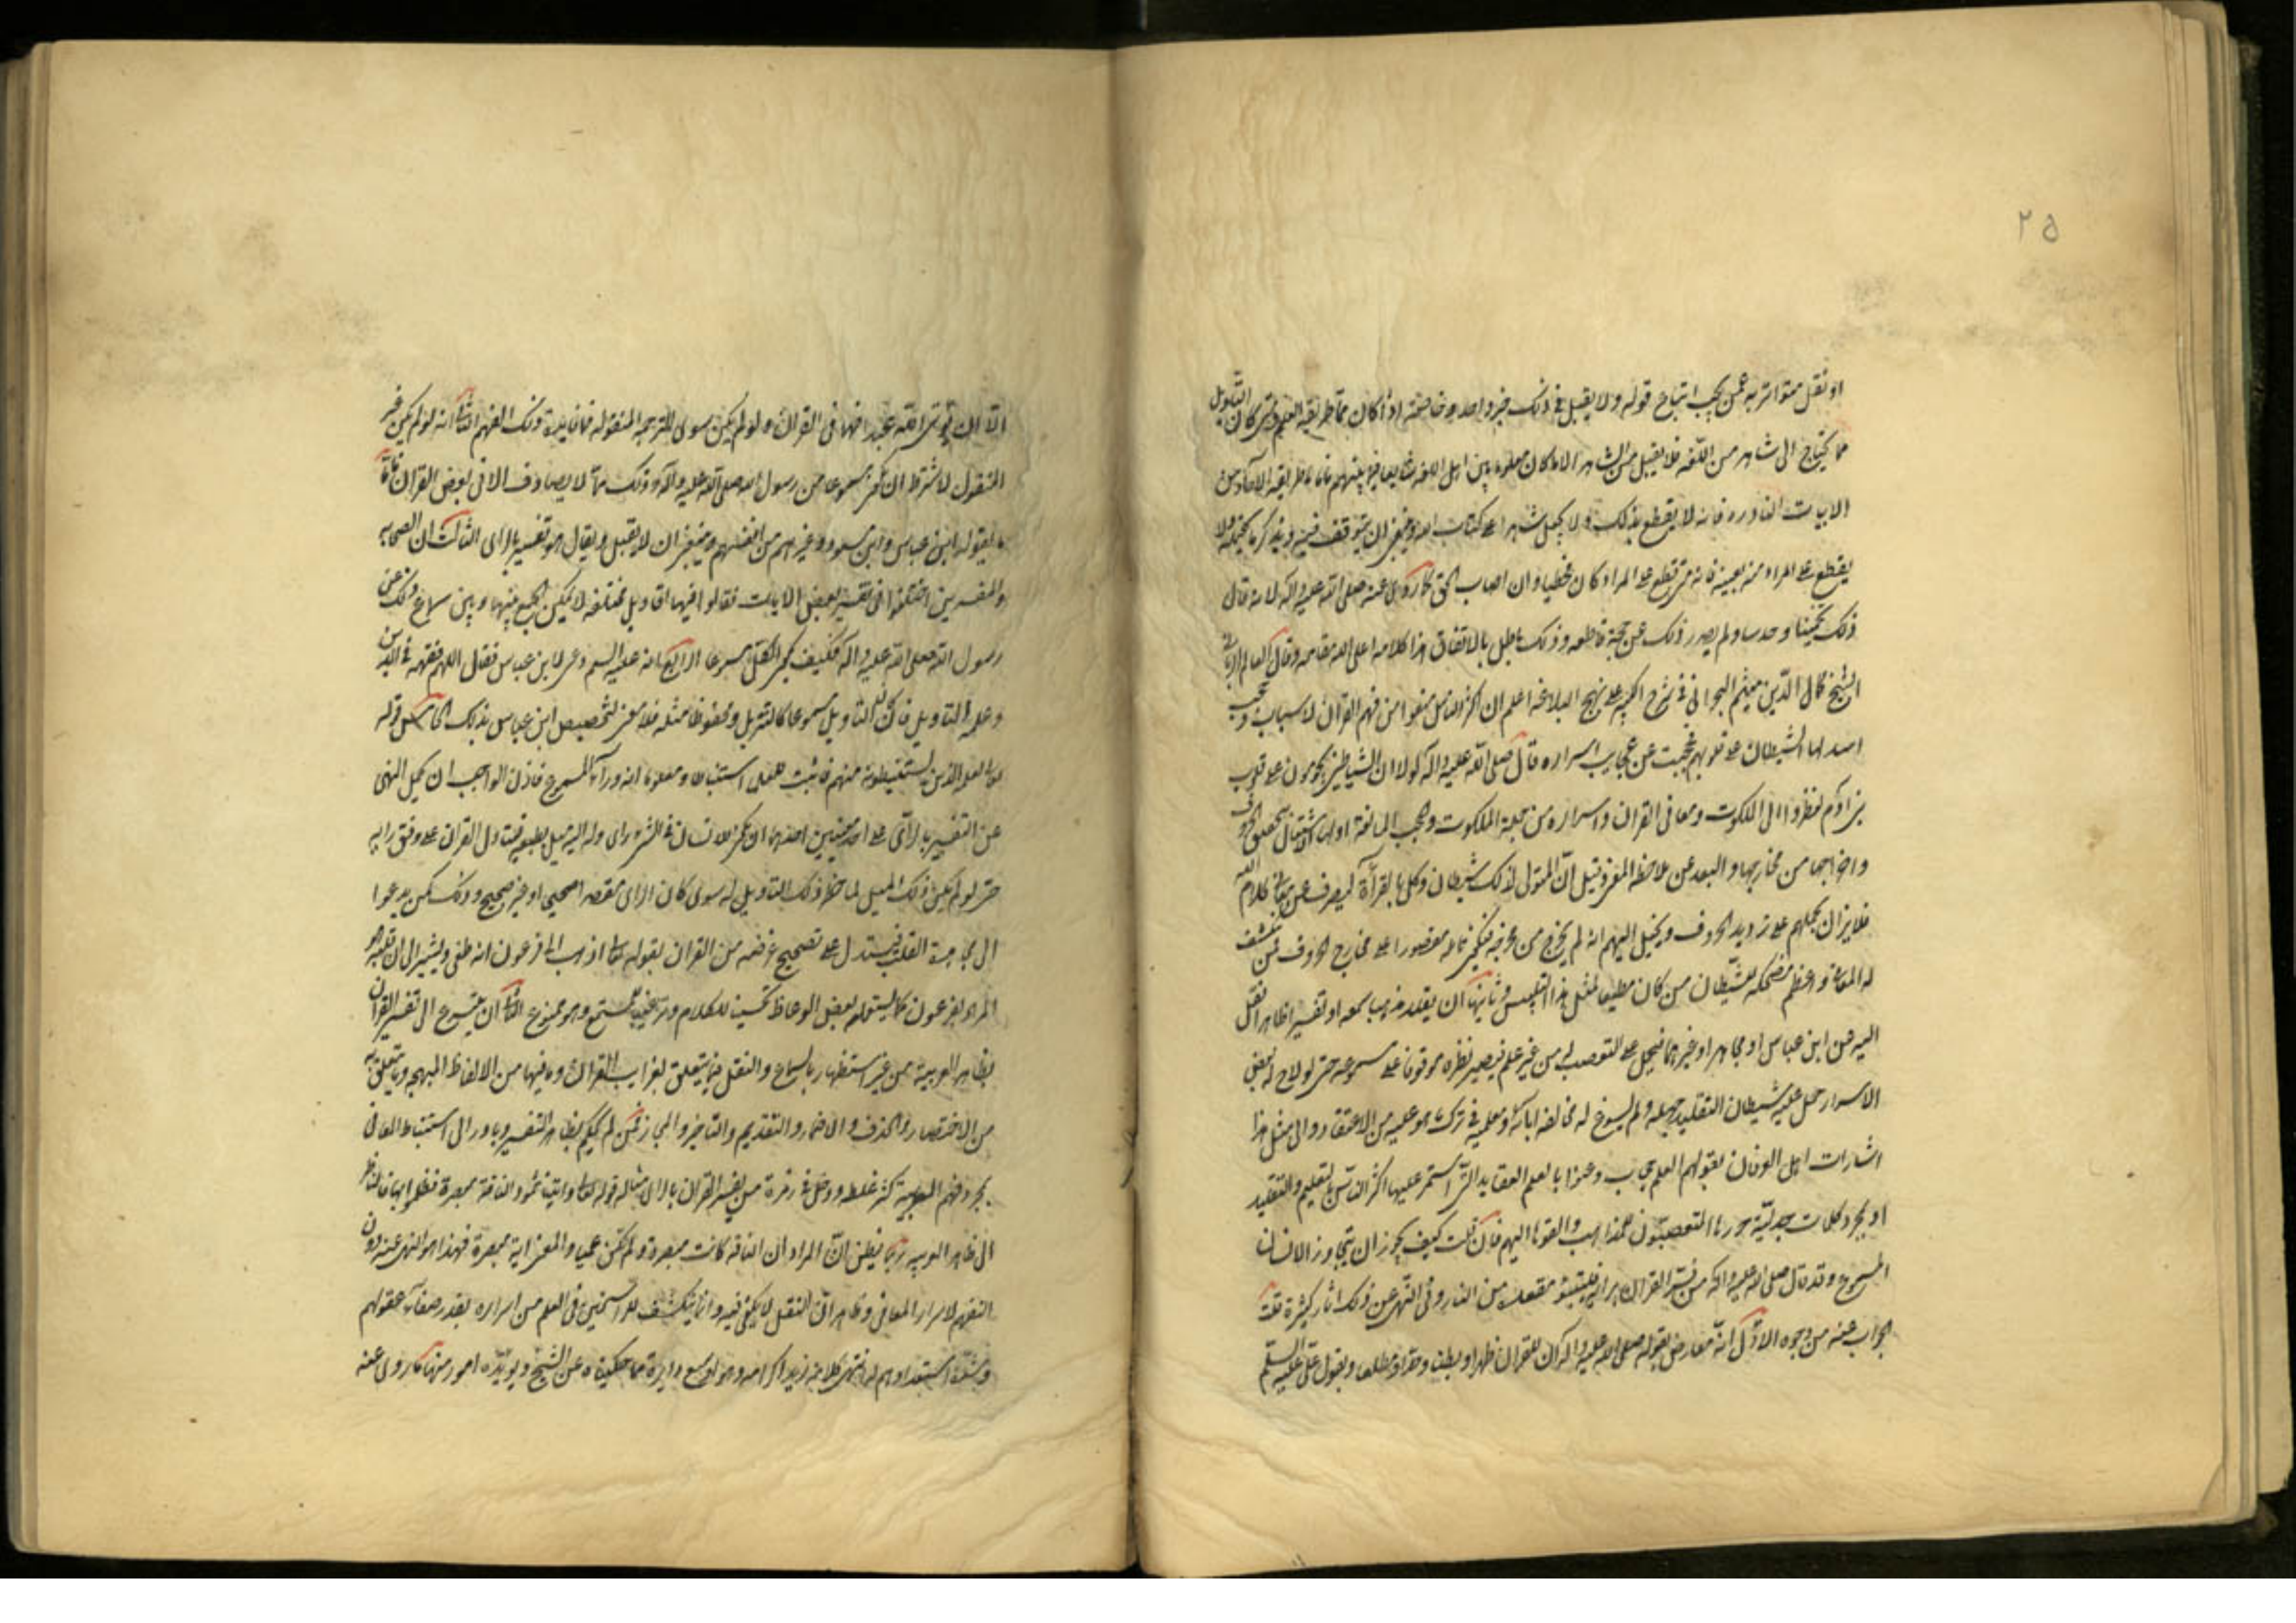 ٢٥
او نقل متواتر به عمن يجب اتباع قوله ولا يقبل في ذلك خبر واحد وخاصة اذا كان مما طريقه العلم ومتى كان التاويل
مما يحتاج الى شاهد من اللغه فلا يقبل من الشاهد الا ما كان معلوما بين اهل اللغه شايعا فيما بينهم فاما ما طريقه الآحاد من
الابيات النادره فانه لا يقطع بذلك ولا يجعل شاهدا على كتاب الله وينبغي ان يتوقف فيه ويذكر ما يحتمله ولا
يقطع على المراد منه بعينه فانه متى قطع على المراد كان مخطيا وان اصاب الحق كما روى عنه صلى الله عليه واله لانه قال
ذلك تخمينا وحدسا ولم يصدر ذلك عن حجة قاطعه وذلك باطل بالاتفاق هذا كلامه اعلى الله مقامه وقال العالم الرباني
الشيخ كمال الدين ميثم البحراني في شرح الكبير على نهج البلاغه اعلم ان اكثر الناس منعوا من فهم القران لاسباب وحجب
اسدلها الشيطان على قلوبهم فحجبت عن عجايب اسراره قال صلى الله عليه واله لولا ان الشياطين يحومون على قلوب
بني آدم لنظروا الى الملكوت ومعاني القران واسراره من جملة الملكوت والحجب المانعة اولها الاشتغال بتحقيق الحروف
واخراجها من مخارجها والبعد عن ملاحظه المعنى وقيل ان المتولى لذلك شيطان وكل بالقرآة ليصرف عن معاني كلام الله
فلا يزال يحملهم على ترديد الحروف ويخيل اليهم انه لم يخرج من مخرجه فيكون تامله مقصورا على مخارج الحروف فمتى تنكشف
له المعانى واعظم مضحكه للشيطان من كان مطيعا لمثل هذا التلبيس وثانيها ان يقلد مذهبا سمعه او تفسيرا ظاهرا نقل
اليه من ابن عباس او مجاهد او غيرهما فيحمل على التعصب له من غير علم فيصير نظره موقوفا على مسموعه حتى لو لاح له بعض
الاسرار حمل عليه شيطان التقليد حمله ولم يسوغ له مخالفه ابائه ومعلميه في ترك ما هو عليه من الاعتقاد والى مثل هذا
اشارات اهل العرفان بقولهم العلم حجاب وعنوا بالعلم العقايد التي استمر عليها اكثر الناس بالتعليم والتقليد
او بمجرد كلمات جدلية حررها المتعصبون للمذاهب والقوها اليهم فان قلت كيف يجوز ان يتجاوز الانسان
المسموع وقد قال صلى الله عليه واله من فسر القران برايه فليتبوء مقعده من النار وفى النهى عن ذلك اثار كثيرة قلت
الجواب عنه من وجوه الاول انه معارض بقوله صلى الله عليه واله ان للقران ظهرا وبطنا وحدا ومطلعا وبقول على عليه السلم
الا ان يؤتى الله عبدا فهما في القران ولو لم يكن سوى الترجمه المنقوله فما فايدة ذلك الفهم الثانى انه لو لم يكن غير
المنقول لاشترط ان يكون مسموعا من رسول الله صلى الله عليه واله وذلك مما لا يصادف الا في بعض القران فاما
ما يقوله ابن عباس وابن مسعود وغيرهم من انفسهم فينبغى ان لا يقبل ويقال هو تفسير بالراى الثالث ان الصحابه
والمفسرين اختلفوا فى تفسير بعض الايات فقالوا فيها اقاويل مختلفه لا يمكن الجمع بينها وبين سماع ذلك عن
رسول الله صلى الله عليه واله فكيف يكون الكل مسموعا الرابع انه عليه السلم دعى لابن عباس فقال اللهم فقهه في الدين
وعلمه التاويل فان كان التاويل مسموعا كالتنزيل ومحفوظا مثله فلا معنى لتخصيص ابن عباس بذلك الخامس قوله
تعا لعلمه الذين يستنبطونه منهم فاثبت للعلماء استنباطا ومعلوم انه ورآء المسموع فاذن الواجب ان يحمل النهى
عن التفسير بالراى على احد معنيين احدهما ان يكون للانسان في الشى راى وله اليه ميل بطبعه فيتاول القران على وفق رايه
حتى لو لم يكن ذلك الميل لما خطر ذلك التاويل له سوى كان الراى مقصدا صحيحا او غير صحيح وذلك كمن يدعوا
الى مجاهدة القلب فيستدل على تصحيح غرضه من القران بقوله تعا اذهب الى فرعون انه طغى ويشير الى ان قلبه هو
المراد بفرعون كما يستعمله بعض الوعاظ تحسينا للكلام وترغيبا للمستمع وهو ممنوع الثانى ان يتسرع الى تفسير القران
بظاهر العربية من غير استظهار بالسماع والنقل فيما يتعلق بغرايب القران وما فيها من الالفاظ المبهمه وما يتعلق به
من الاختصار والحذف والاضمار والتقديم والتاخير والمجاز فمن لم يحكم بظاهر التفسير وبادر الى استنباط المعانى
بمجرد فهم العربيه كثر غلطه ودخل في زمرة من يفسر القران بالراى مثاله قوله تعا واتينا ثمود الناقة مبصرة فظلموا بها فالناظر
الى ظاهر العربيه ربما يظن ان المراد ان الناقه كانت مبصرة ولم تكن عميا والمعنى اية مبصرة فهذا هو المنهى عنه دون
التفهم لاسرار المعانى وظاهر ان النقل لا يكفى فيه وانما ينكشف للراسخين فى العلم من اسراره بقدر صفآء عقولهم
وشدة استعدادهم له انتهى كلامه زيد اكرامه وهو اوسع دايرة مما حكيناه عن الشيخ ويؤيده امور منها ما روى عنه